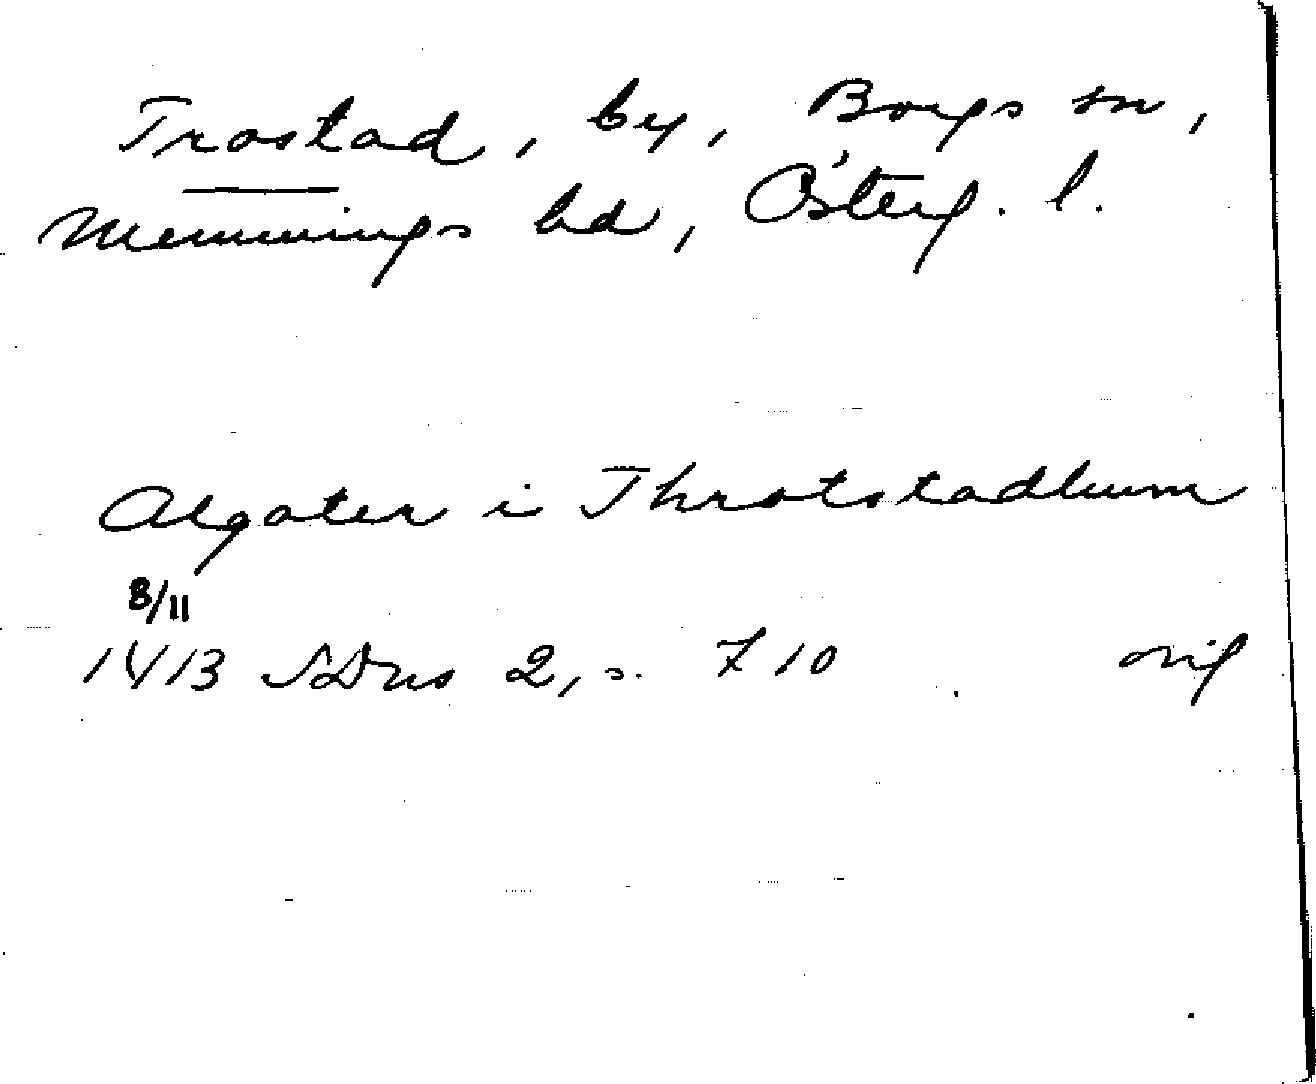 Trostad, by, Borgs sn,
Memmings hd, Österg. l.
Algoter i Throtstadhum
8/11
1413 SDns 2, s. 710 orig